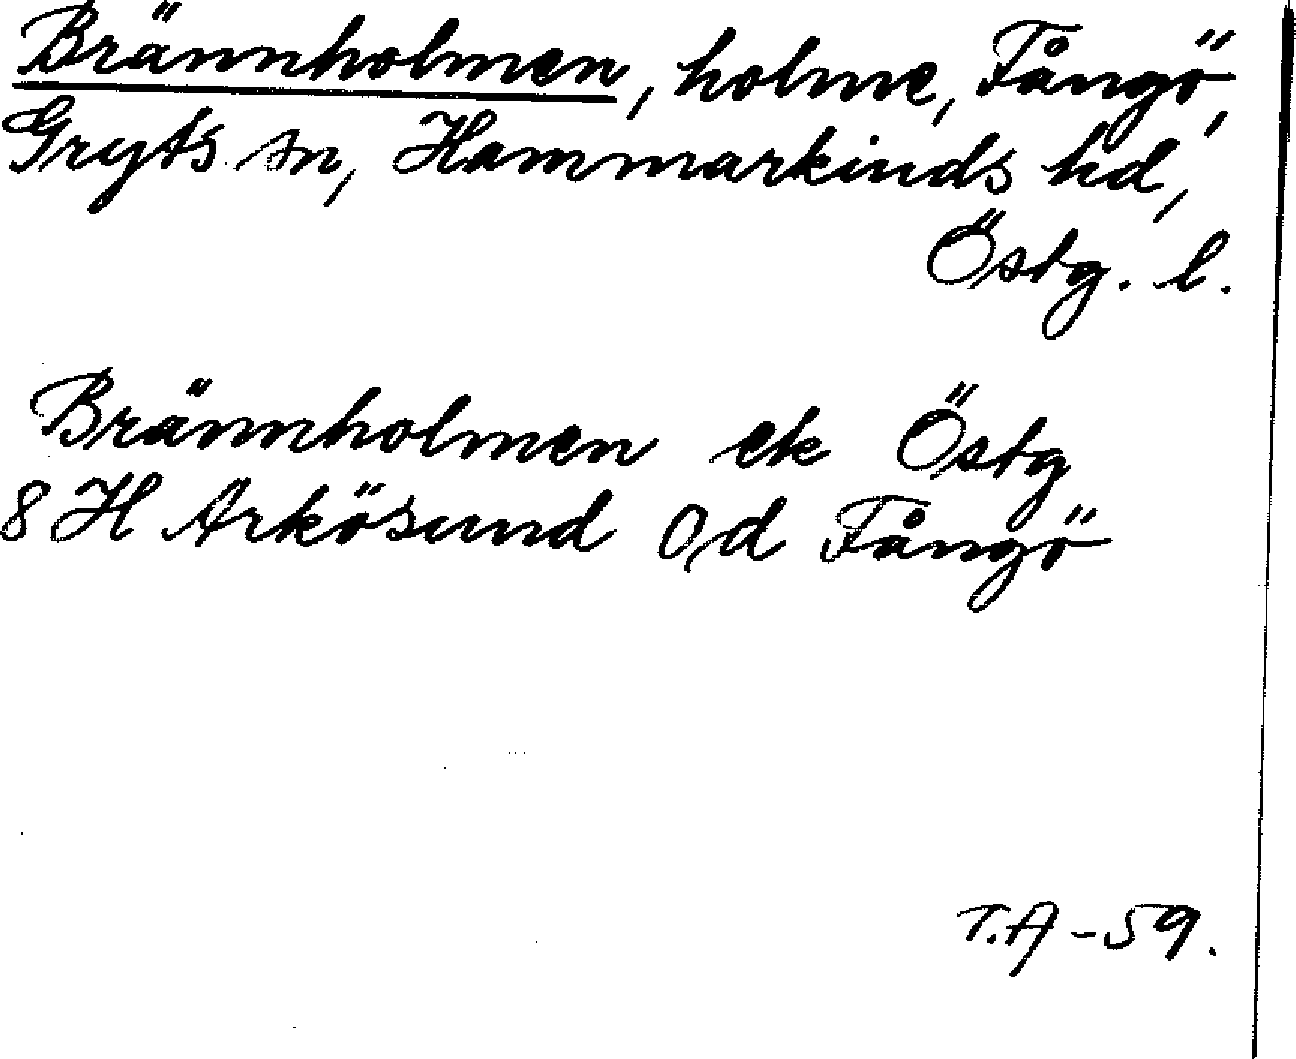 Brännholmen, holme, Fångö,
Gryts sn, Hammarkinds hd,
Östg. l.
Brännholmen ek Östg
8 H Arkösund O,d Fångö
T.A -59.